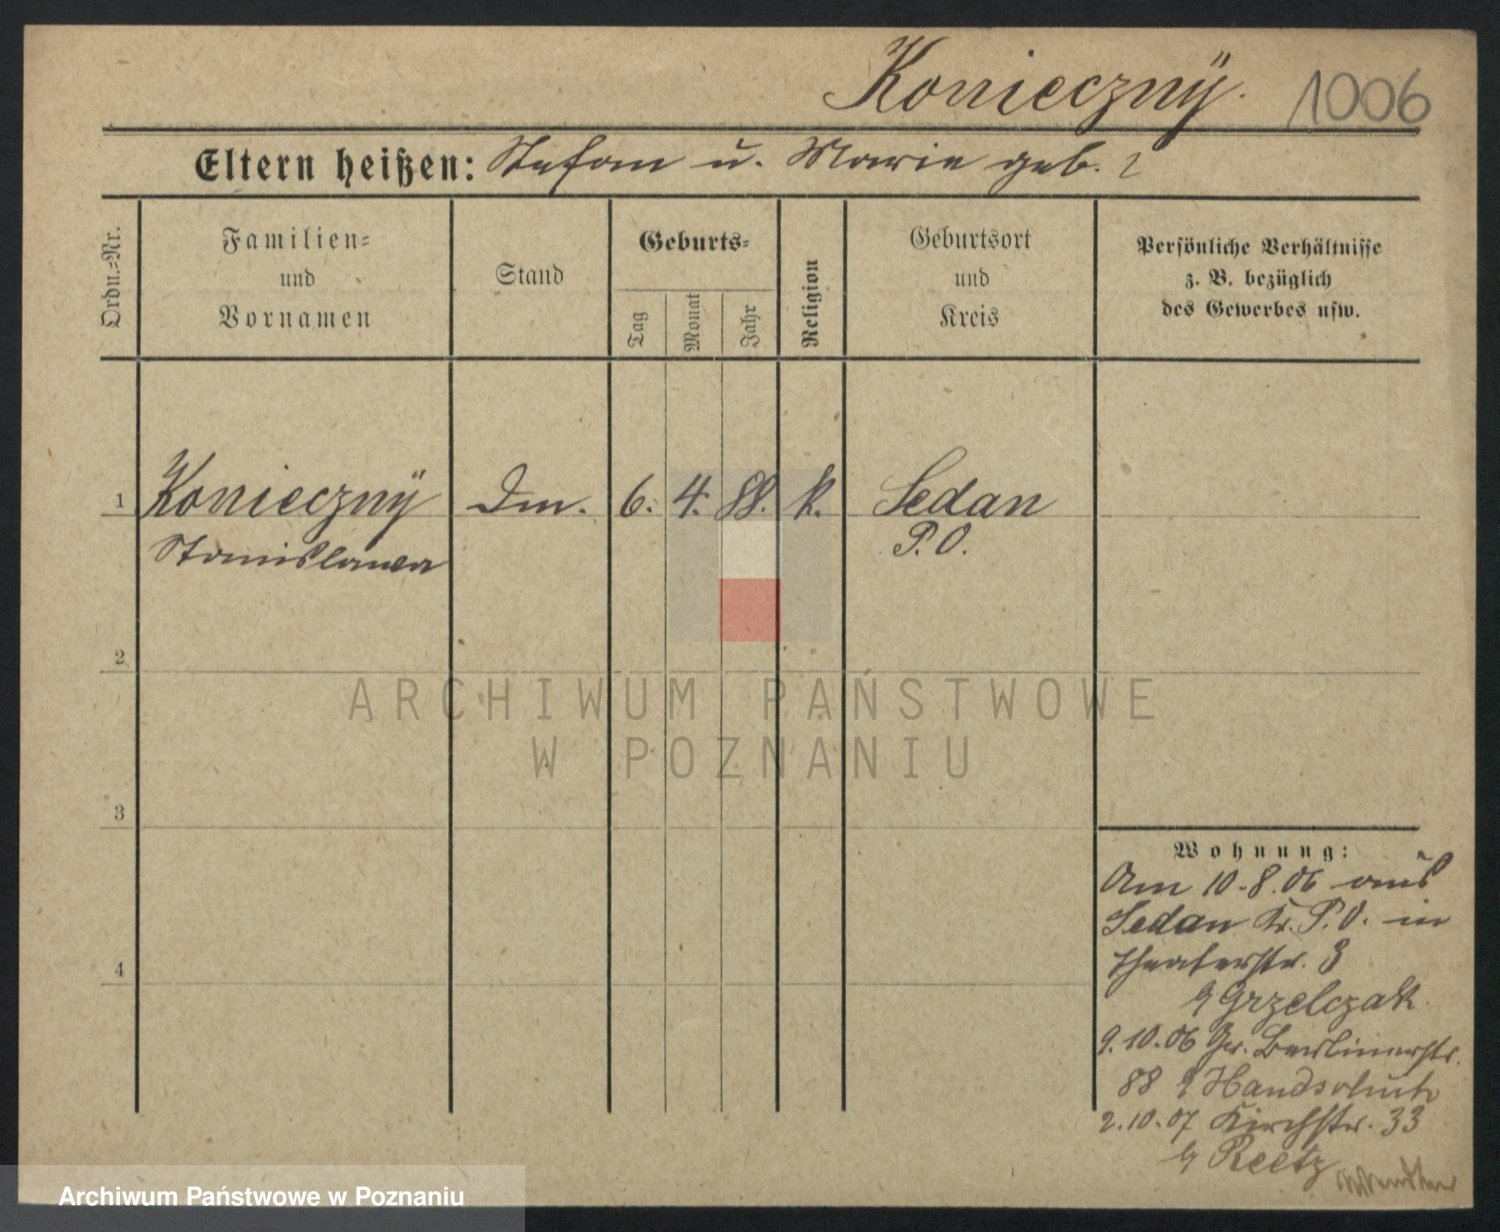 Konieczny. 1006
Eltern heißen: Stefan u. Marie geb. ?
Ordn.-Nr.
Familien-
und
Vornamen
Stand
Geburts-
Tag
Monat
Jahr
Religion
Geburtsort
und
Kreis
Persönliche Verhältnisse
z. B. bezüglich
des Gewerbes usw.
1 Konieczny Dm. 6. 4. 88. k. Sedan
Stanislawa P. O.
2
3
4
ARCHIWUM PAŃSTWOWE
W POZNANIU
Wohnung:
Am 10.8.06 aus
Sedan Kr. P. O. in
Theaterstr. 3
Grzelczak
9.10.06 Gr. Berlinerstr.
88 Handschuh
2.10.07 Kirchstr. 33
Reetz
Archiwum Państwowe w Poznaniu